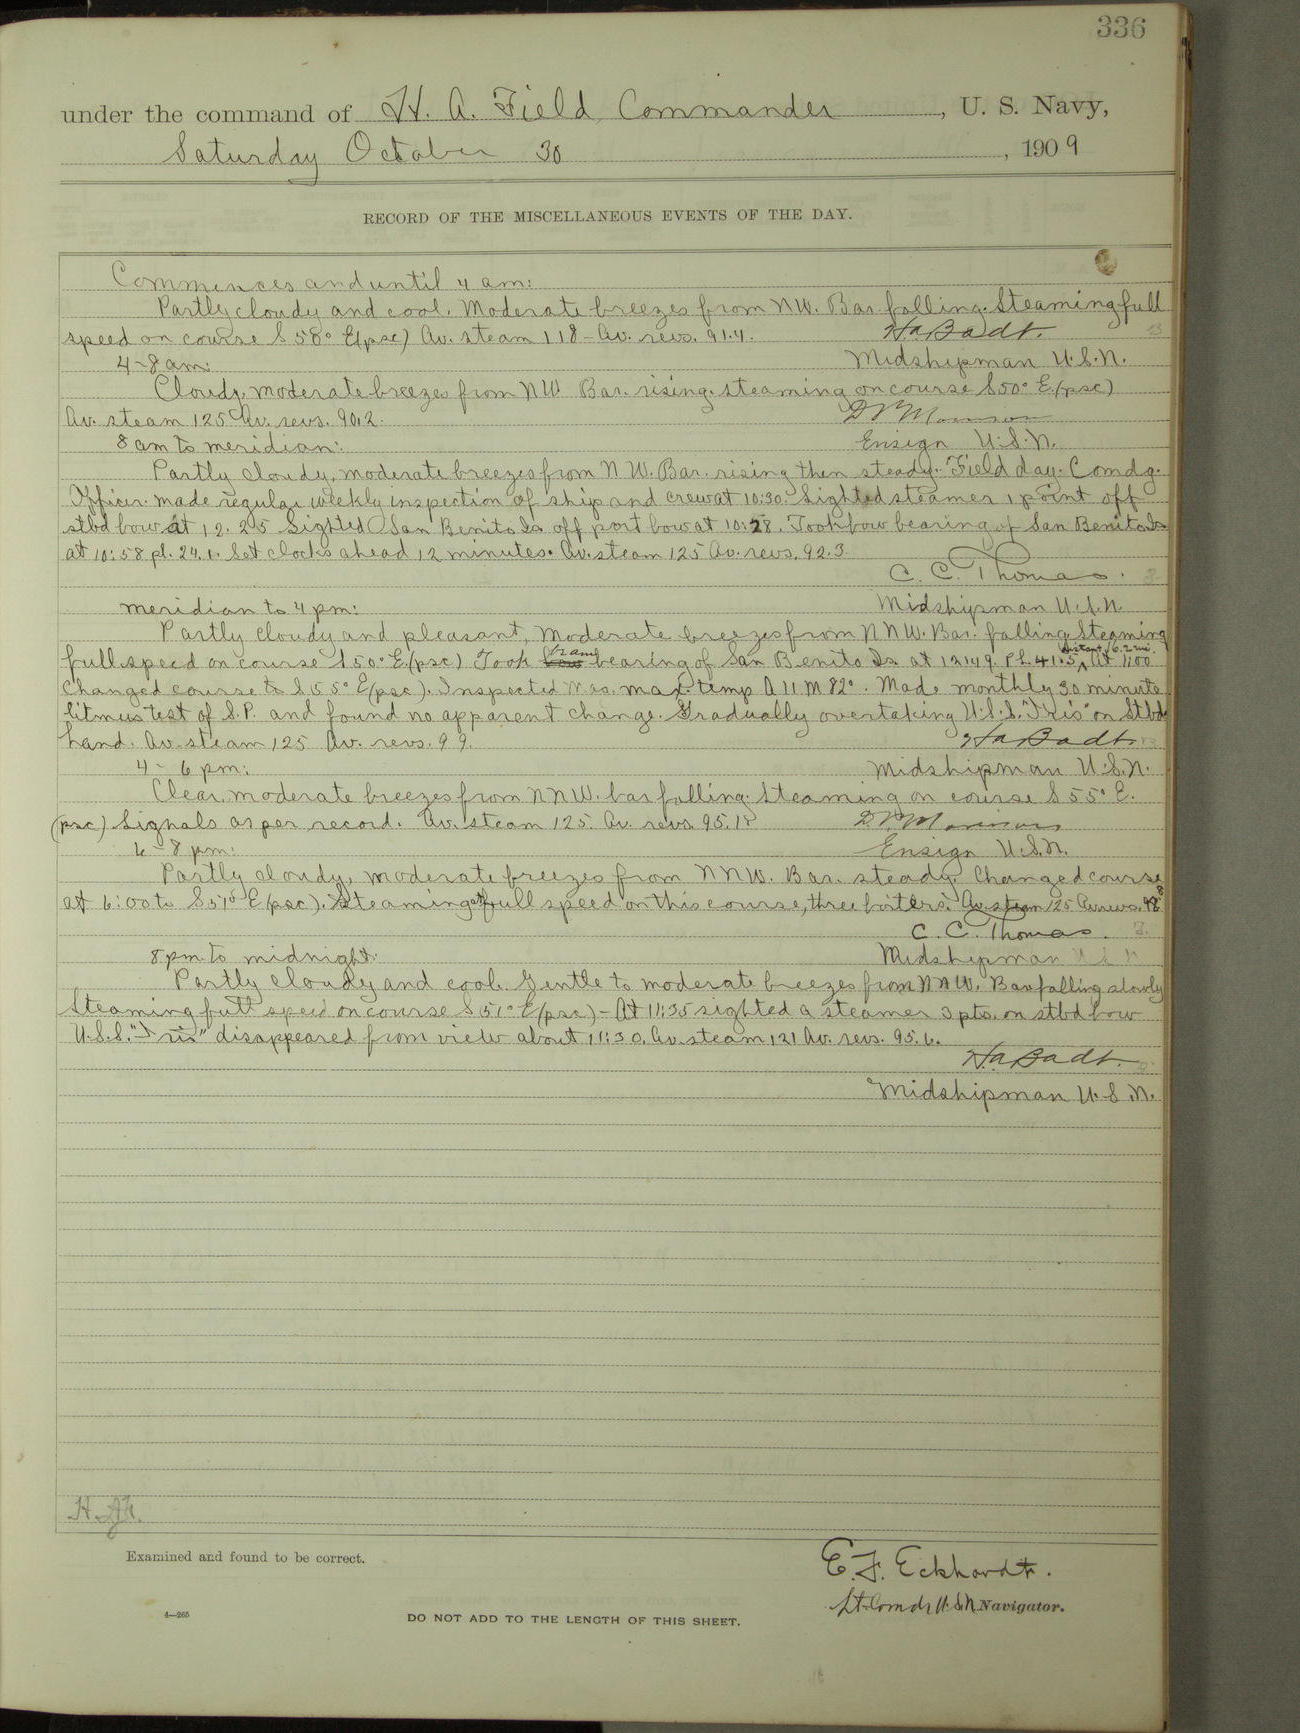 336
under the command of H. A. Field, Commander, U. S. Navy,
Saturday October 30, 1909
RECORD OF THE MISCELLANEOUS EVENTS OF THE DAY.
Commences and until 4 am:
Partly cloudy and cool. Moderate breezes from NW. Bar. falling. Steaming full
speed on course S 50° E (psc) Av. steam 118 - Av. revs. 91.4. H a Badt.
4-8 am: Midshipman U.S.N.
Cloudy, moderate breezes from NW Bar. rising. steaming on course S50° E. (psc)
Av. steam 125 Av. revs. 90.2. D P Morrison
8 am to meridian: Ensign U.S.N.
Partly cloudy, moderate breezes from N W. Bar. rising then steady. Field day. Comdg.
Officer made regular weekly inspection of ship and crew at 10:30. Sighted steamer 1 point off
stbd bow at 12.25 Sighted San Benito Is off port bow at 10:28. Took bow bearing of San Benito Is
at 10:58 pl. 24.1. Set clocks ahead 12 minutes. Av. steam 125 Av. revs. 92.3
C. C. Thomas.
meridian to 4 pm: Midshipman U.S.N.
Partly cloudy and pleasant, Moderate breezes from NNW. Bar. falling. Steaming
full speed on course S 50° E (psc) Took beam bearing of San Benito Is at 12:49. Pl. 41.5 distant 16.2 mi. At 1:00
Changed course to S 55° E (psc). Inspected mag. max. temp A 11 M 82°. Made monthly 30 minute
litmus test of S.P. and found no apparent change. Gradually overtaking U.S.S. "Iris" on Stbd
hand. Av. steam 125 Av. revs. 99. H a Badt.
4 - 6 pm: Midshipman U.S.N.
Clear, moderate breezes from NNW. bar falling. Steaming on course S 55° E.
(psc) Signals as per record. Av. steam 125. Av. revs. 95.1 D P Morrison
6 - 8 pm: Ensign U.S.N.
Partly cloudy, moderate breezes from NNW. Bar. steady. Changed course
at 6:00 to S 51° E (psc). Steaming at full speed on this course, three boilers. Av. steam 125 Av. revs. 98
C. C. Thomas.
8 pm to midnight: Midshipman U S N
Partly cloudy and cool. Gentle to moderate breezes from NNW. Bar falling slowly
Steaming full speed on course S 51° E (psc) - At 11:35 sighted a steamer 3 pts. on stbd bow
U.S.S. "Iris" disappeared from view about 11:30. Av. steam 121 Av. revs. 95.6.
H. a Badt.
Midshipman U.S.N.
Examined and found to be correct.
E. F. Eckhardt.
Lt-Comdr U.S.N. Navigator.
4—265
DO NOT ADD TO THE LENGTH OF THIS SHEET.